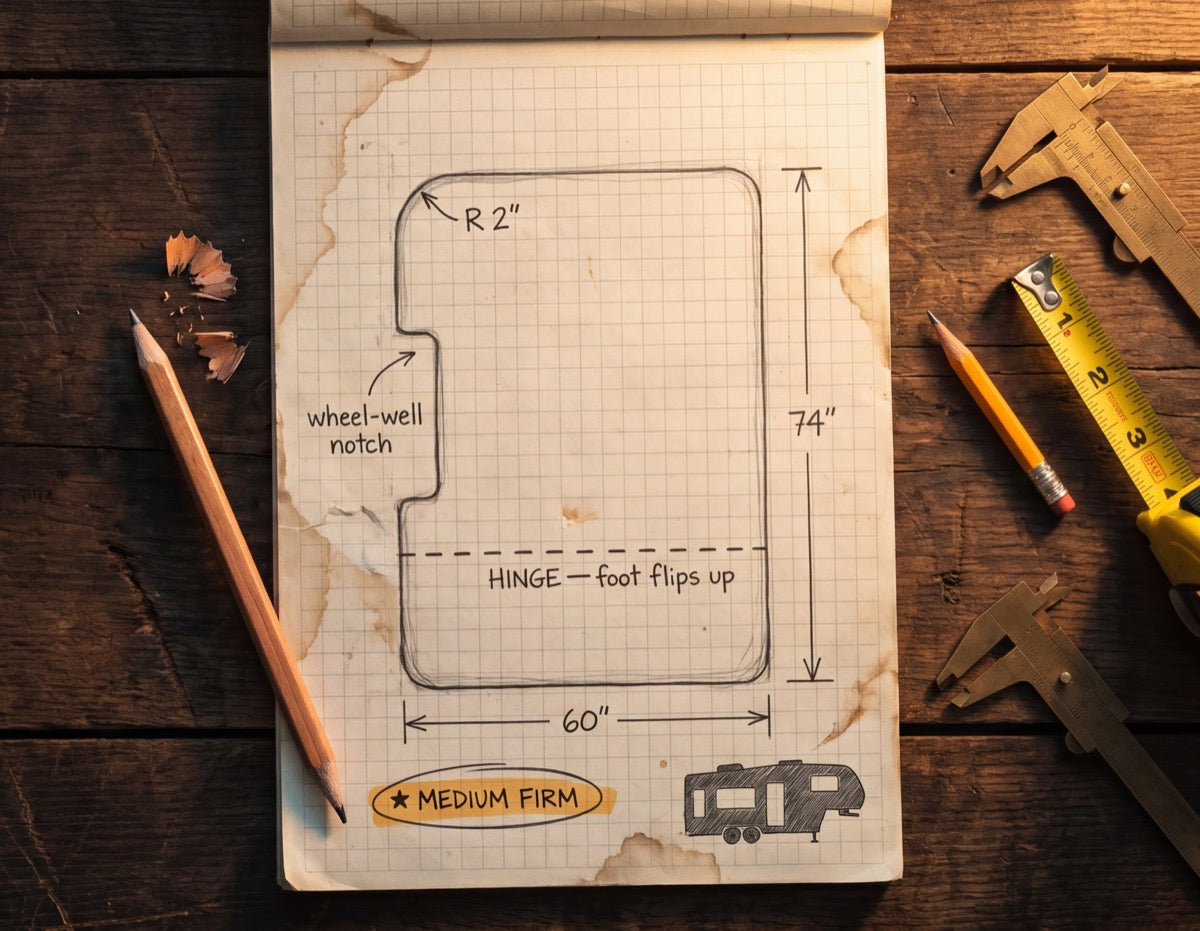 R 2"
wheel-well
notch
74"
HINGE — foot flips up
60"
★ MEDIUM FIRM
1
2
3